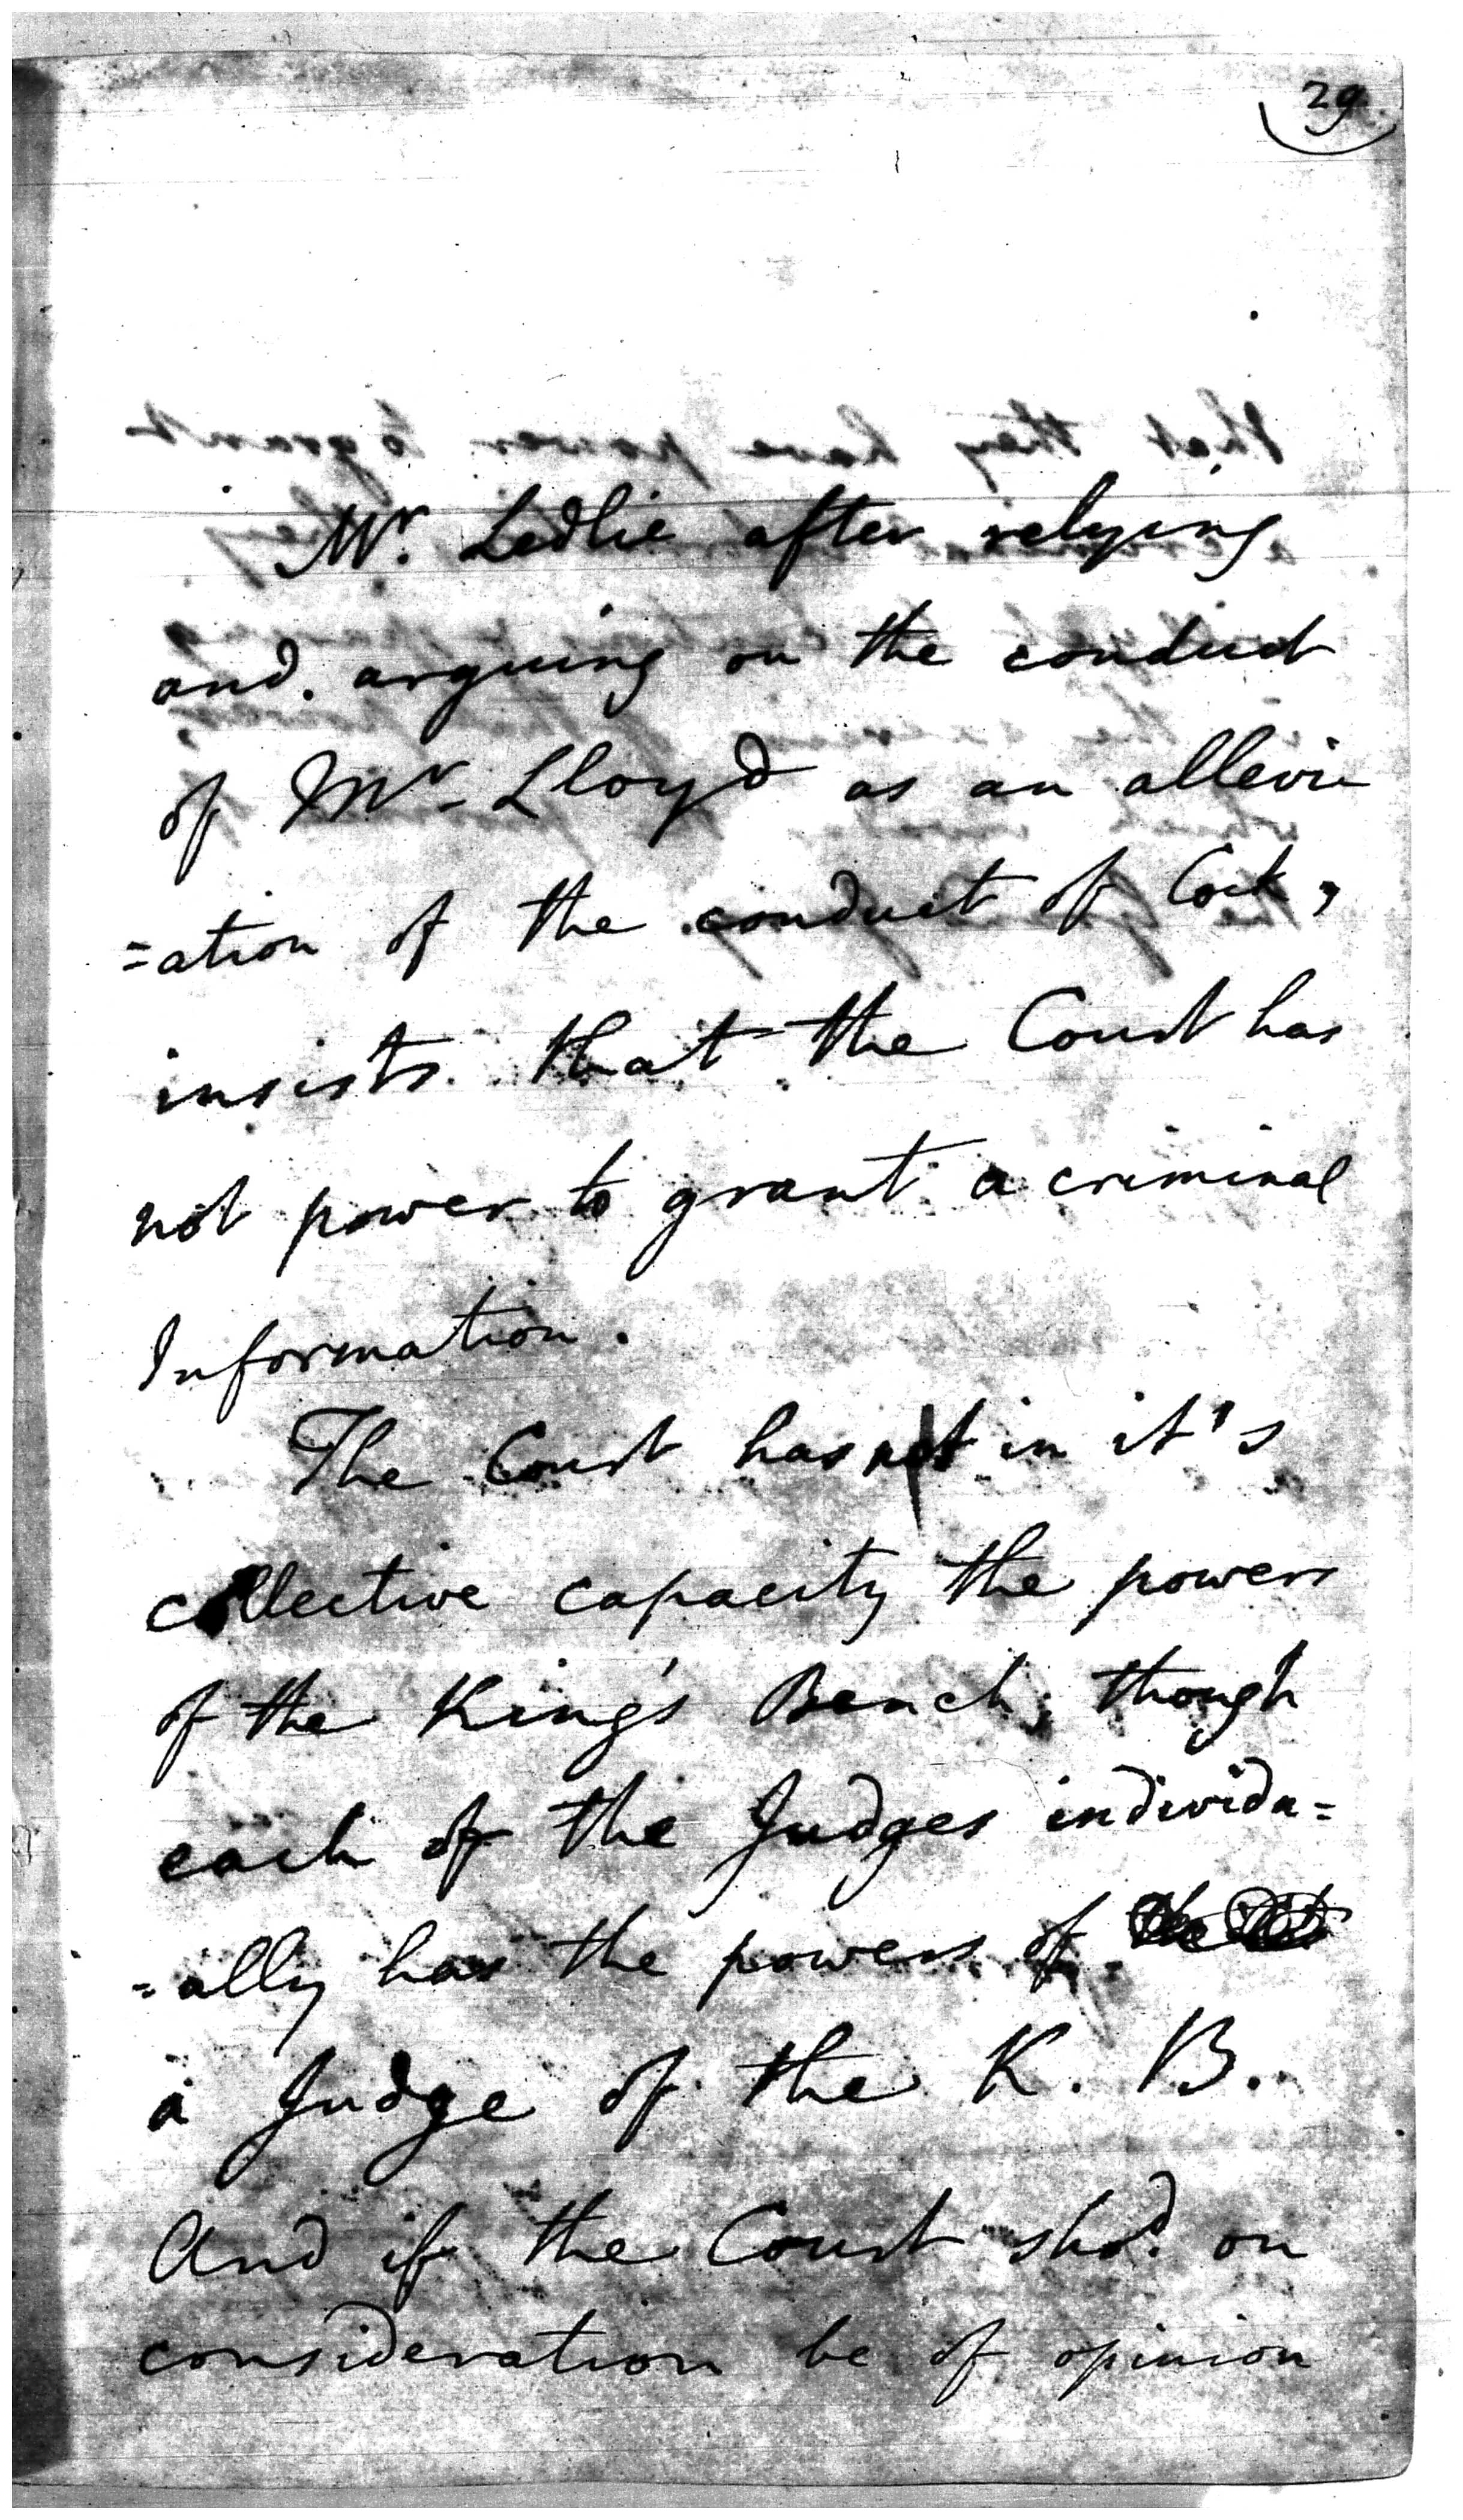 29
Mr. Ledlie after relying
and. arguing on the conduct
of Mr. Lloyd as an allevi
=ation of the conduct of Cock,
insists that the Court has
not power to grant a criminal
Information.
The Court has not in it's
collective capacity the powers
of the King's Bench, though
each of the Judges individu=
=ally has the powers of
a Judge of the K. B.
And if the Court shod. on
consideration be of opinion